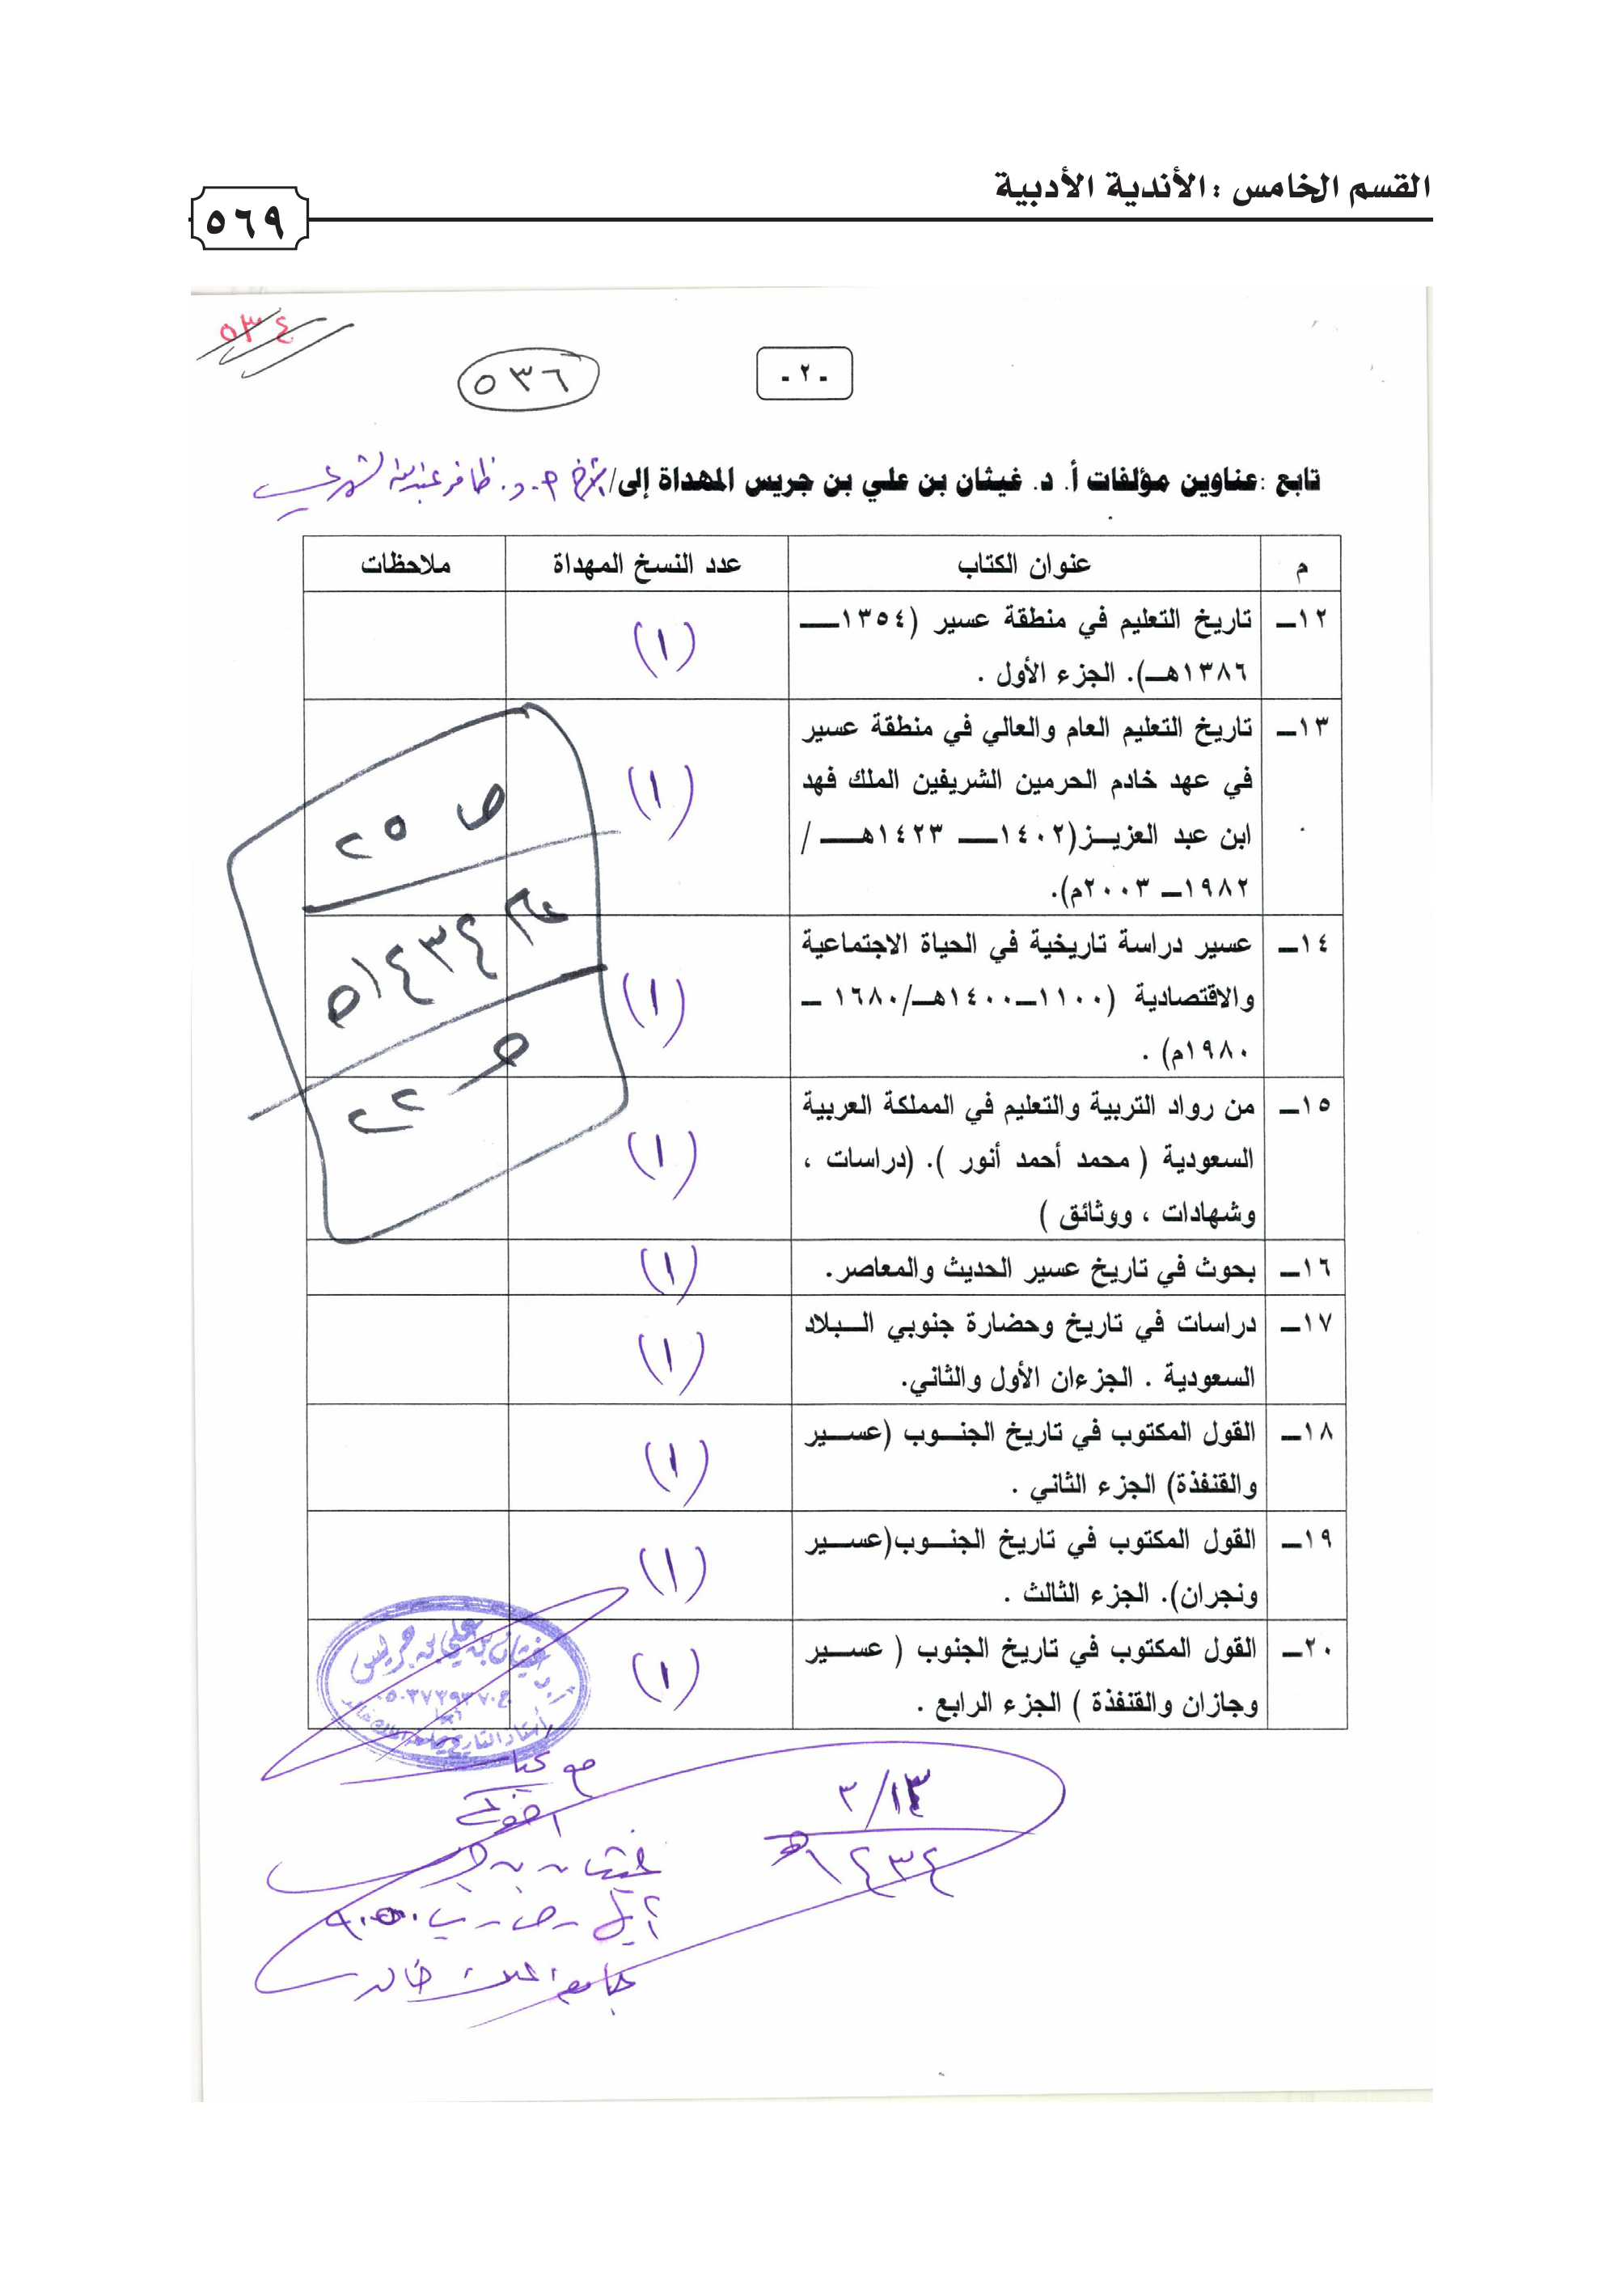 القسم الخامس : الأندية الأدبية
٥٦٩
٥٣٤
٥٣٦
- ٢ -
تابع : عناوين مؤلفات أ. د. غيثان بن علي بن جريس المهداة إلى/ د. ظافر عبدالله الشهري
م عنوان الكتاب عدد النسخ المهداة ملاحظات
١٢ــ تاريخ التعليم في منطقة عسير (١٣٥٤ــ (١)
١٣٨٦هــ). الجزء الأول .
١٣ــ تاريخ التعليم العام والعالي في منطقة عسير (١)
في عهد خادم الحرمين الشريفين الملك فهد
ابن عبد العزيــز(١٤٠٢ــ ١٤٢٣هــ /
١٩٨٢ــ ٢٠٠٣م).
١٤ــ عسير دراسة تاريخية في الحياة الاجتماعية (١)
والاقتصادية (١١٠٠ــ١٤٠٠هــ/١٦٨٠ ــ
١٩٨٠م) .
١٥ــ من رواد التربية والتعليم في المملكة العربية (١)
السعودية ( محمد أحمد أنور ). (دراسات ،
وشهادات ، ووثائق )
١٦ــ بحوث في تاريخ عسير الحديث والمعاصر. (١)
١٧ــ دراسات في تاريخ وحضارة جنوبي الــبلاد (١)
السعودية . الجزءان الأول والثاني.
١٨ــ القول المكتوب في تاريخ الجنــوب (عســير (١)
والقنفذة) الجزء الثاني .
١٩ــ القول المكتوب في تاريخ الجنــوب(عســير (١)
ونجران). الجزء الثالث .
٢٠ــ القول المكتوب في تاريخ الجنوب ( عســير (١)
وجازان والقنفذة ) الجزء الرابع .
ص ٢٥
عام ١٤٣٤ه
ح ٢٢
غيثان بن علي بن جريس
أستاذ التاريخ بجامعة الملك خالد
١٣/ ٣
١٤٣٤ه
غيثان بن جريس
جامعة الملك خالد